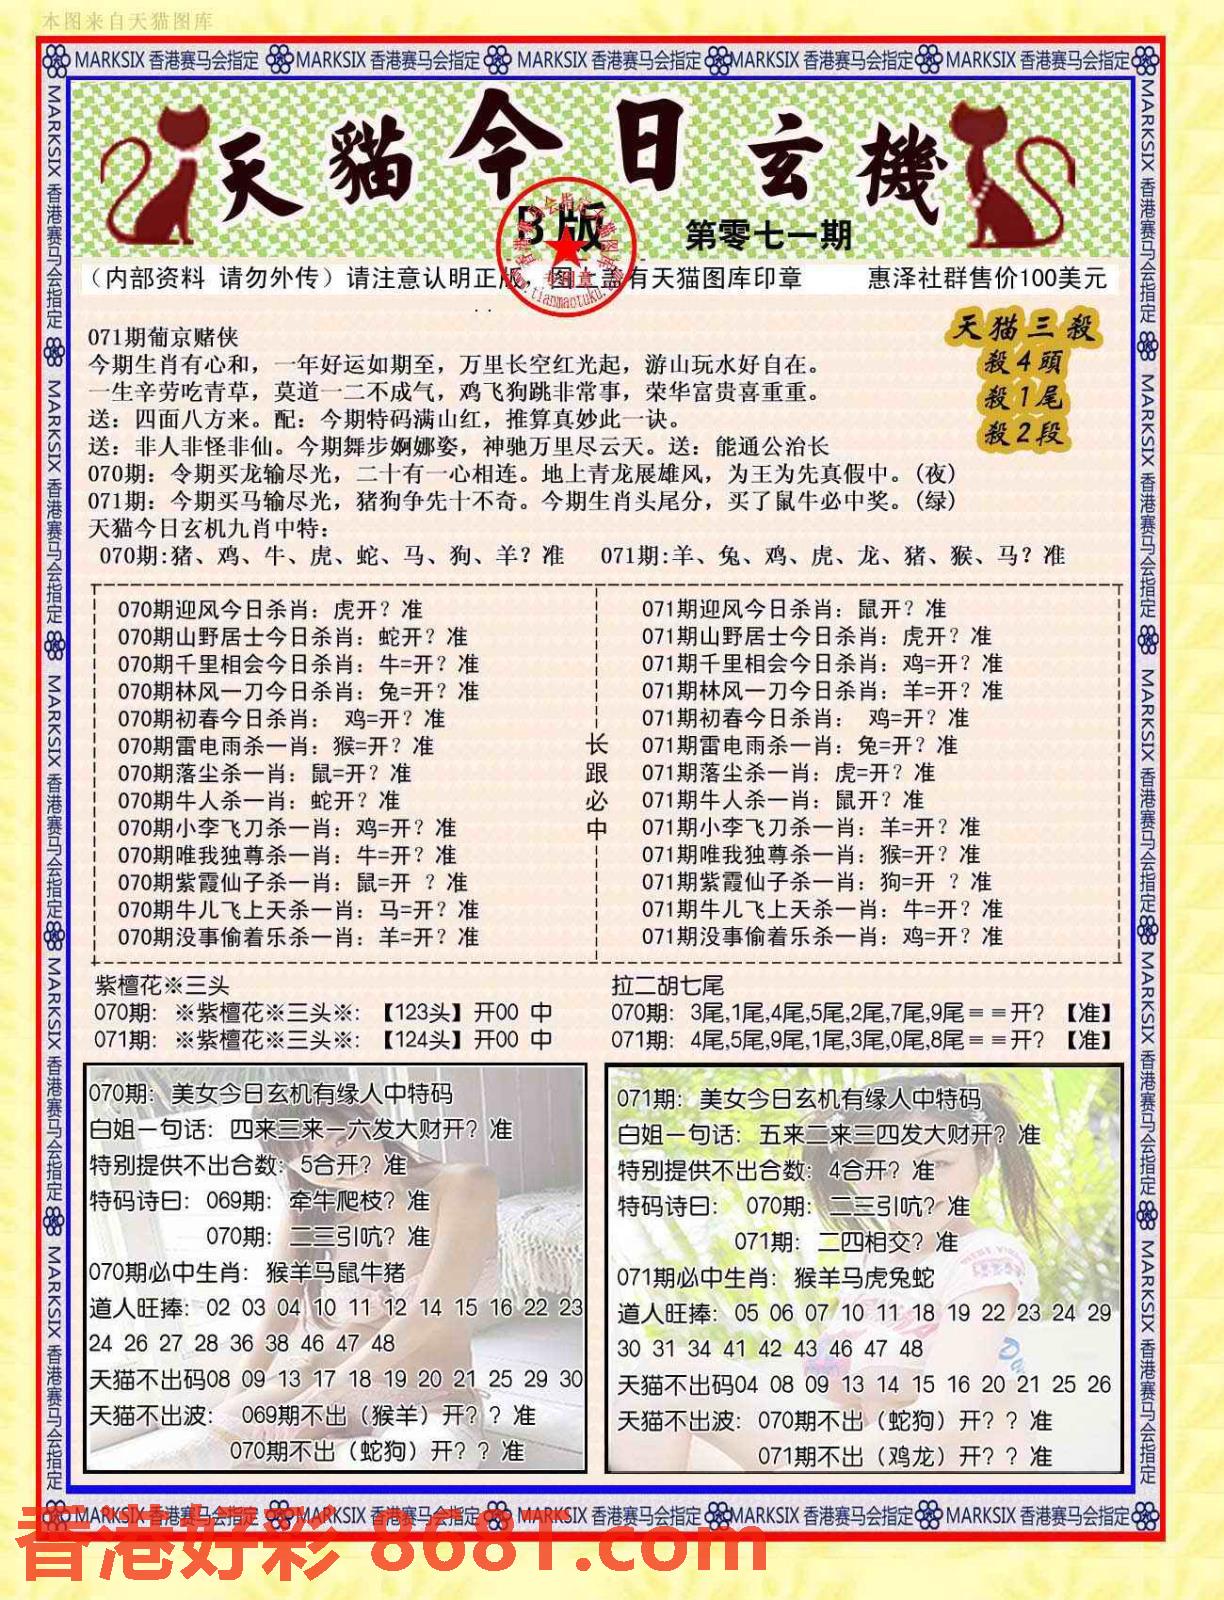 本图来自天猫图库
MARKSIX 香港赛马会指定 MARKSIX 香港赛马会指定 MARKSIX 香港赛马会指定 MARKSIX 香港赛马会指定 MARKSIX 香港赛马会指定
天貓今日玄機
B版
第零七一期
（内部资料 请勿外传）请注意认明正版，图上盖有天猫图库印章 惠泽社群售价100美元
天猫三殺
殺4頭
殺1尾
殺2段
071期葡京赌侠
今期生肖有心和，一年好运如期至，万里长空红光起，游山玩水好自在。
一生辛劳吃青草，莫道一二不成气，鸡飞狗跳非常事，荣华富贵喜重重。
送：四面八方来。配：今期特码满山红，推算真妙此一诀。
送：非人非怪非仙。今期舞步婀娜姿，神驰万里尽云天。送：能通公治长
070期：令期买龙输尽光，二十有一心相连。地上青龙展雄风，为王为先真假中。(夜)
071期：今期买马输尽光，猪狗争先十不奇。今期生肖头尾分，买了鼠牛必中奖。(绿)
天猫今日玄机九肖中特：
070期:猪、鸡、牛、虎、蛇、马、狗、羊？准 071期:羊、兔、鸡、虎、龙、猪、猴、马？准
070期迎风今日杀肖：虎开？准
070期山野居士今日杀肖：蛇开？准
070期千里相会今日杀肖：牛=开？准
070期林风一刀今日杀肖：兔=开？准
070期初春今日杀肖： 鸡=开？准
070期雷电雨杀一肖：猴=开？准
070期落尘杀一肖：鼠=开？准
070期牛人杀一肖：蛇开？准
070期小李飞刀杀一肖：鸡=开？准
070期唯我独尊杀一肖：牛=开？准
070期紫霞仙子杀一肖：鼠=开 ？准
070期牛儿飞上天杀一肖：马=开？准
070期没事偷着乐杀一肖：羊=开？准
长跟必中
071期迎风今日杀肖：鼠开？准
071期山野居士今日杀肖：虎开？准
071期千里相会今日杀肖：鸡=开？准
071期林风一刀今日杀肖：羊=开？准
071期初春今日杀肖： 鸡=开？准
071期雷电雨杀一肖：兔=开？准
071期落尘杀一肖：虎=开？准
071期牛人杀一肖：鼠开？准
071期小李飞刀杀一肖：羊=开？准
071期唯我独尊杀一肖：猴=开？准
071期紫霞仙子杀一肖：狗=开 ？准
071期牛儿飞上天杀一肖：牛=开？准
071期没事偷着乐杀一肖：鸡=开？准
紫檀花※三头
070期： ※紫檀花※三头※: 【123头】开00 中
071期： ※紫檀花※三头※: 【124头】开00 中
拉二胡七尾
070期： 3尾,1尾,4尾,5尾,2尾,7尾,9尾＝＝开？【准】
071期： 4尾,5尾,9尾,1尾,3尾,0尾,8尾＝＝开？【准】
070期：美女今日玄机有缘人中特码
白姐一句话：四来三来一六发大财开？准
特别提供不出合数：5合开？准
特码诗曰：069期：牵牛爬枝？准
070期：二三引吭？准
070期必中生肖：猴羊马鼠牛猪
道人旺捧：02 03 04 10 11 12 14 15 16 22 23
24 26 27 28 36 38 46 47 48
天猫不出码08 09 13 17 18 19 20 21 25 29 30
天猫不出波： 069期不出（猴羊）开？？准
070期不出（蛇狗）开？？准
071期：美女今日玄机有缘人中特码
白姐一句话：五来二来三四发大财开？准
特别提供不出合数：4合开？准
特码诗曰： 070期：二三引吭？准
071期：二四相交？准
071期必中生肖：猴羊马虎兔蛇
道人旺捧：05 06 07 10 11 18 19 22 23 24 29
30 31 34 41 42 43 46 47 48
天猫不出码04 08 09 13 14 15 16 20 21 25 26
天猫不出波：070期不出（蛇狗）开？？准
071期不出（鸡龙）开？？准
MARKSIX 香港赛马会指定 MARKSIX 香港赛马会指定 MARKSIX 香港赛马会指定 MARKSIX 香港赛马会指定 MARKSIX 香港赛马会指定
香港好彩 8681.com